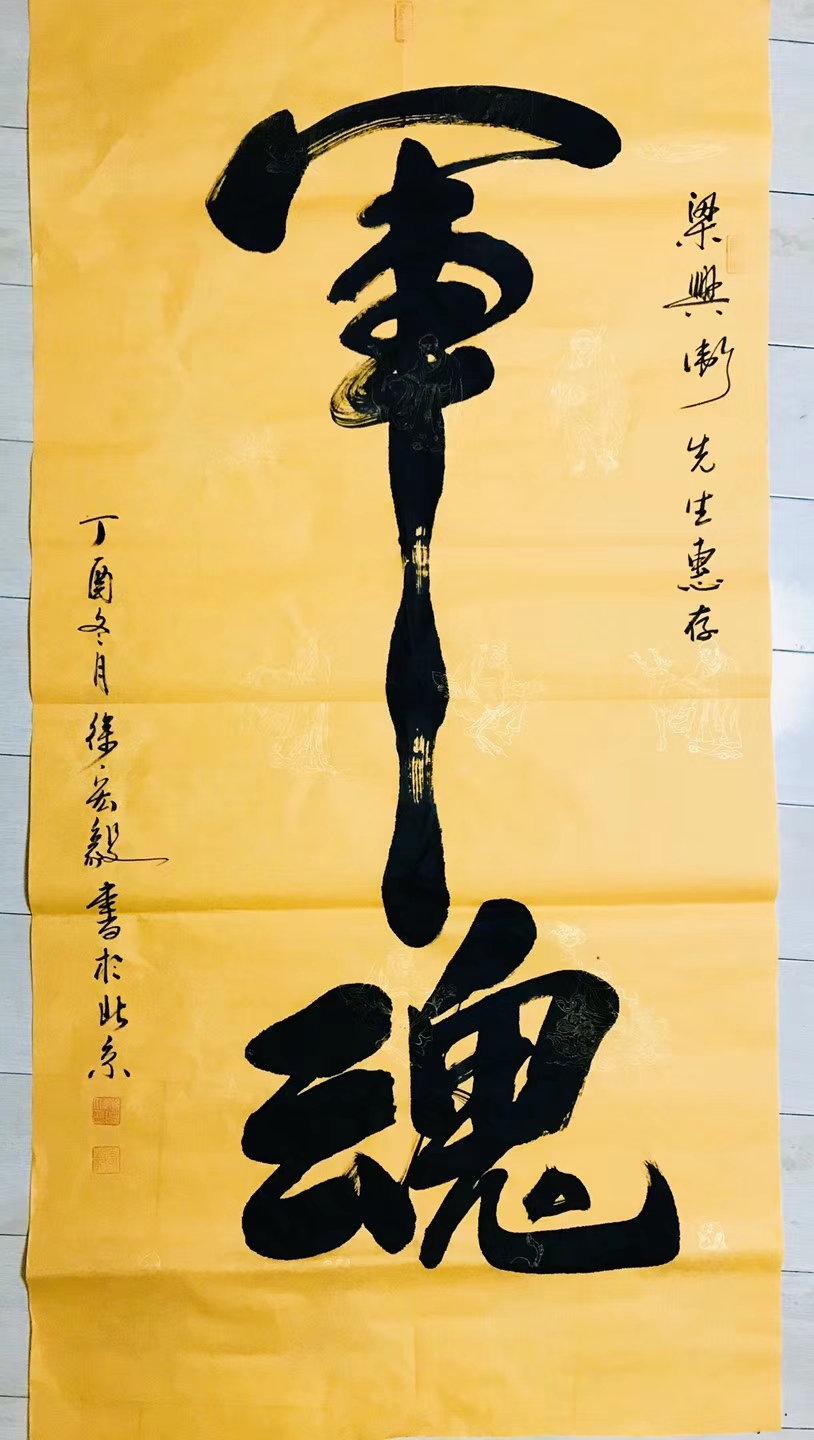 梁興衛先生惠存
軍魂
丁酉冬月徐宏毅書於北京